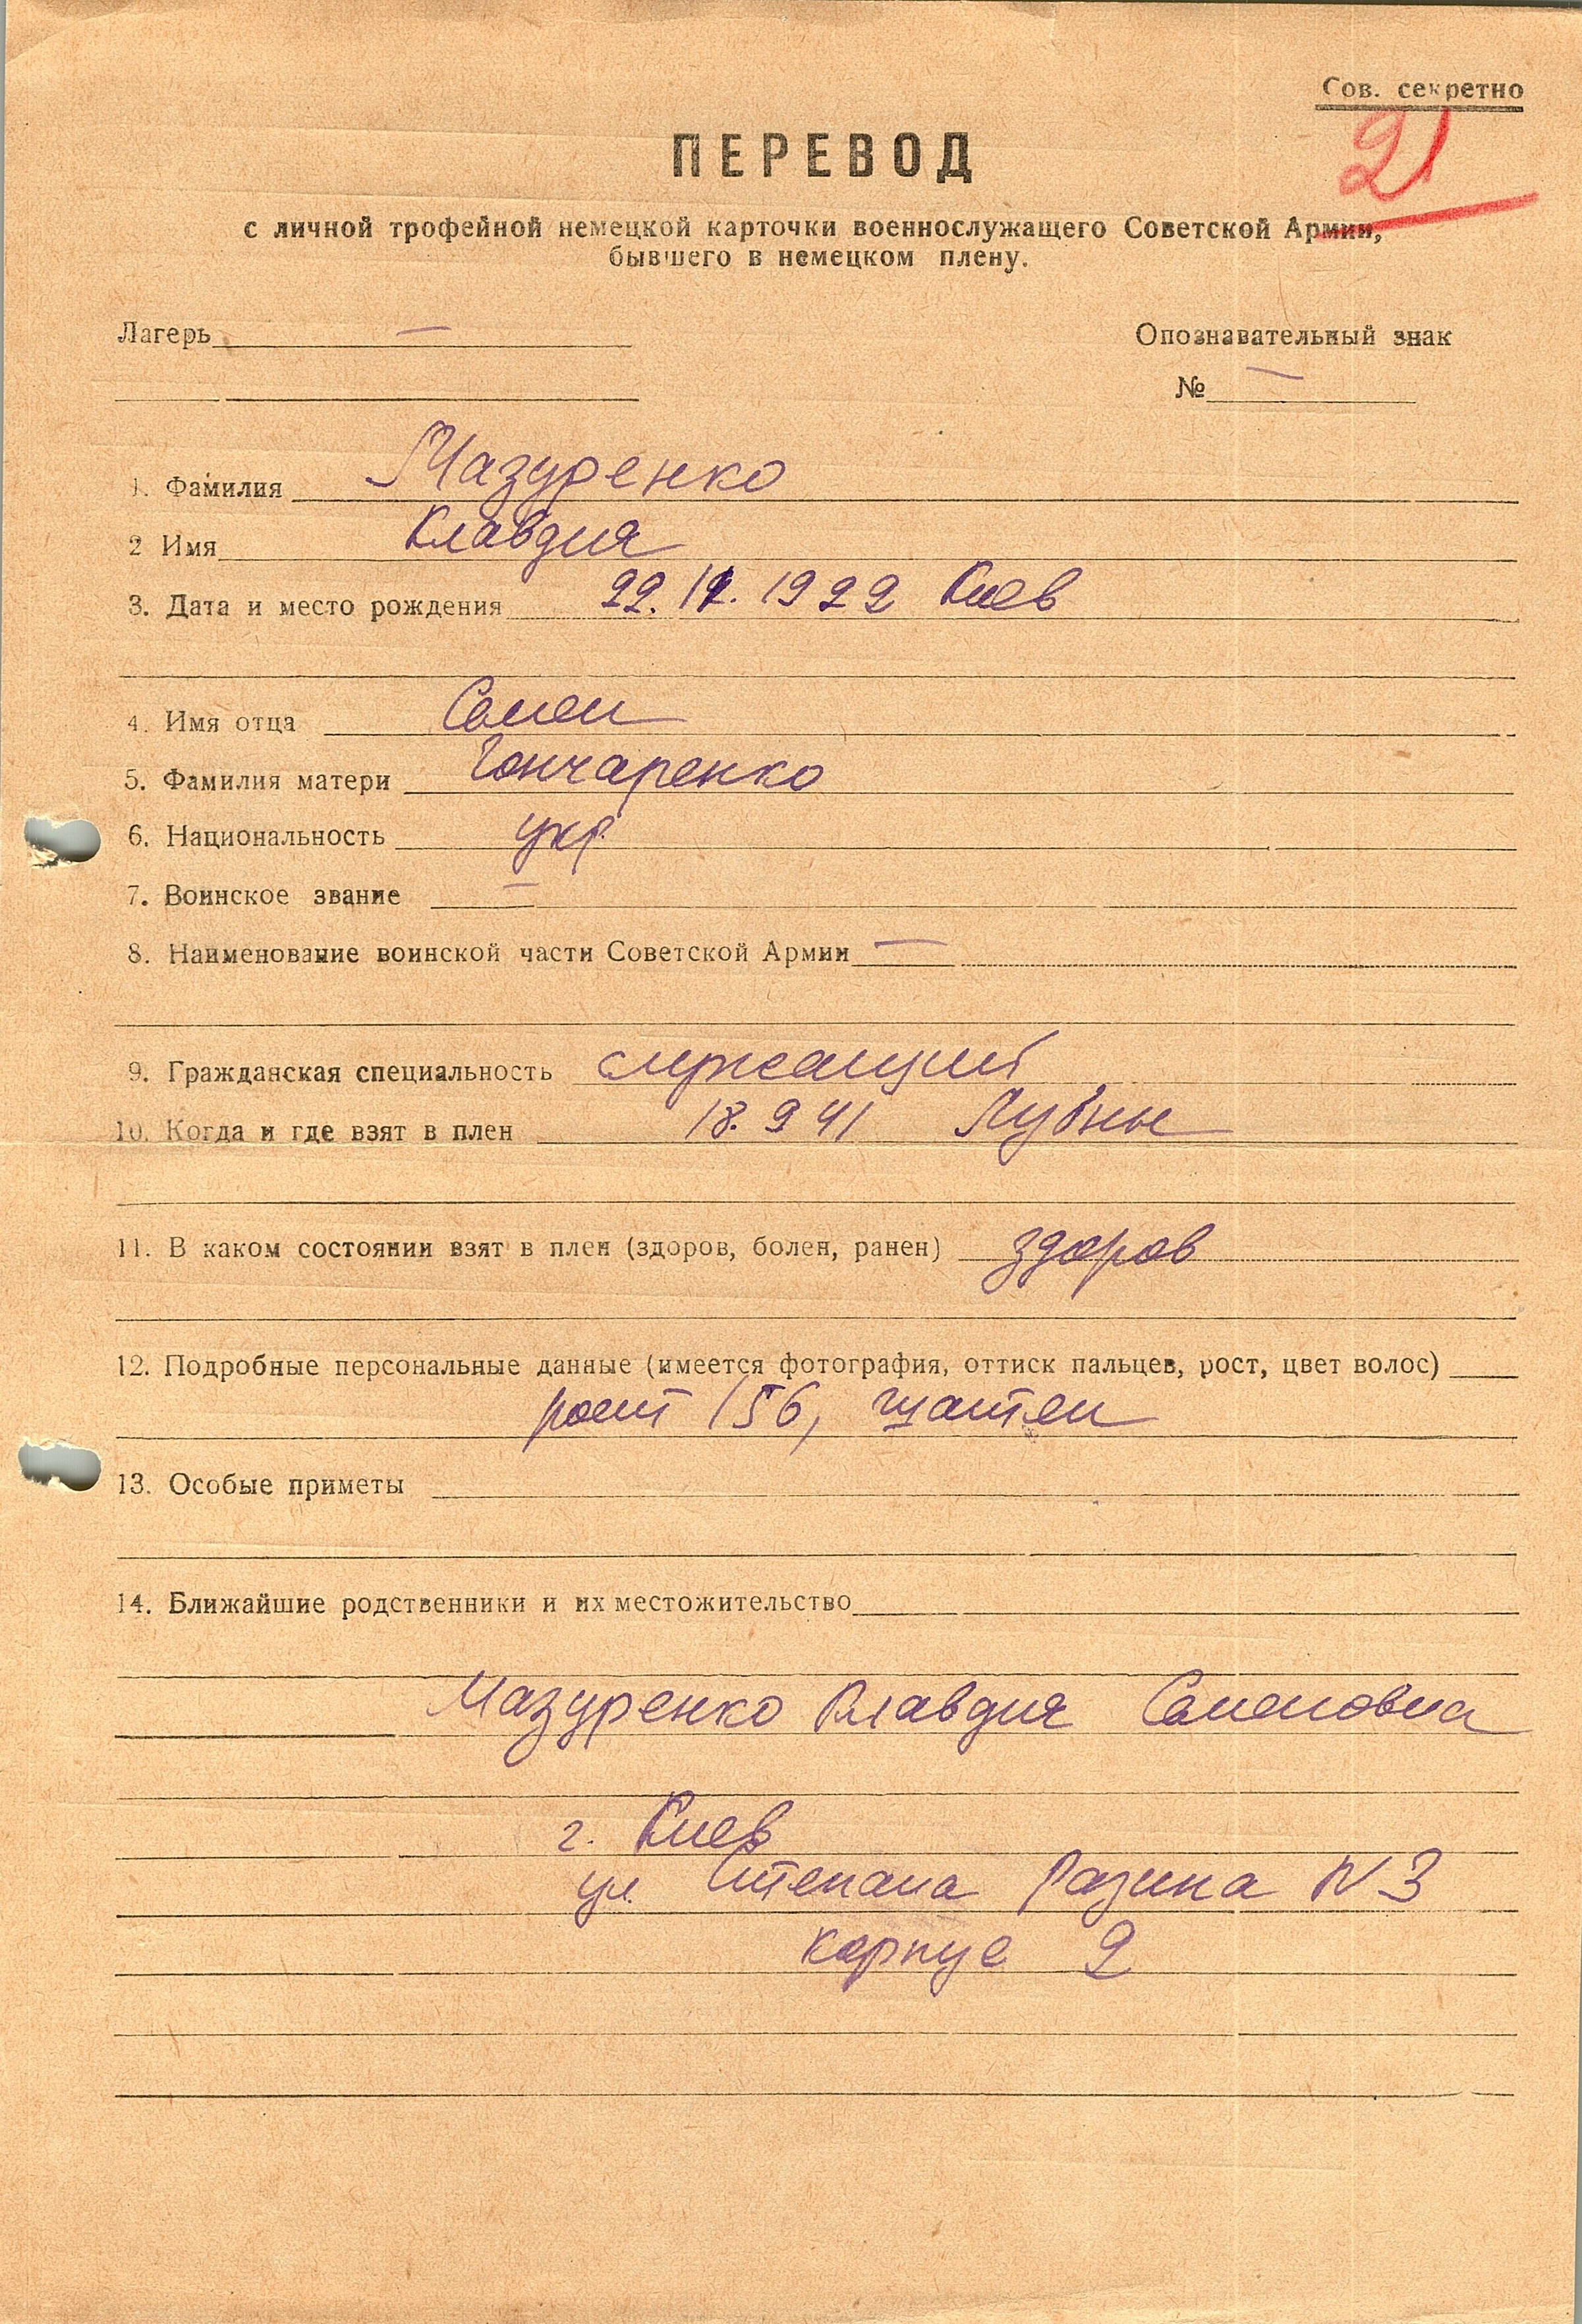 Сов. секретно
21
ПЕРЕВОД
с личной трофейной немецкой карточки военнослужащего Советской Армии,
бывшего в немецком плену.
Лагерь — Опознавательный знак
№ —
1. Фамилия Мазуренко
2 Имя Клавдия
3. Дата и место рождения 22. . 1922 Киев
4. Имя отца Семен
5. Фамилия матери Гончаренко
6. Национальность укр.
7. Воинское звание —
8. Наименование воинской части Советской Армии —
9. Гражданская специальность служащий
10. Когда и где взят в плен 18. 9 41 Лубны
11. В каком состоянии взят в плен (здоров, болен, ранен) здоров
12. Подробные персональные данные (имеется фотография, оттиск пальцев, рост, цвет волос)
рост 156, шатен
13. Особые приметы
14. Ближайшие родственники и их местожительство
Мазуренко Клавдия Семеновна
г. Киев
ул. Степана Разина N 3
корпус 2